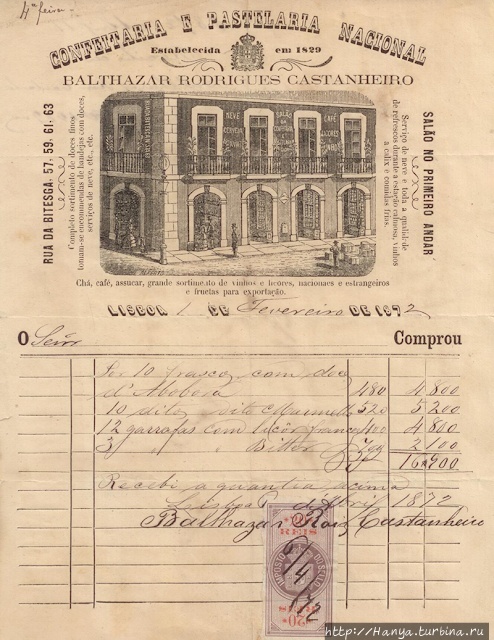 4ª feira
CONFEITARIA E PASTELARIA NACIONAL
Estabelecida em 1829
BALTHAZAR RODRIGUES CASTANHEIRO
RUA DA BITESGA. 57. 59. 61. 63
Completo sortimento de doces finos
tomam-se encommendas de bandejas com doces,
serviços de neve, etc., etc.
NEVE
CERVEJA
SALÃO
CAFÉ
LICORES
SALÃO NO PRIMEIRO ANDAR
Serviço de neve e toda a qualidade
de refrescos durante a estação calmosa, vinhos
a calix e comidas frias.
Chá, café, assucar, grande sortimento de vinhos e licôres, nacionaes e estrangeiros
e fructas para exportação.
LISBOA 1 DE Fevereiro DE 1872
O Senr Comprou
Por 10 frascos com doce
d'Abobora 480 4800
10 ditos dito Marmello 520 5200
12 garrafas com licôr francez 400 4800
3 " " Bitter 700 2100
16900
Recebi a quantia acima
Lisboa 1872
Balthazar Roiz Castanheiro
IMPOSTO DO SELLO